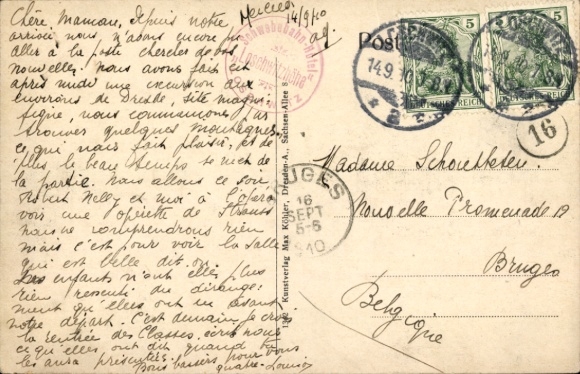 Mercredi
14/9/10
Chère Maman, Depuis notre
arrivée nous n'avons encore pu
aller à la poste chercher de vos
nouvelles. Nous avons fait cet
après midi une excursion aux
environs de Dresde, site magni-
fique, nous commençons par
trouver quelques montagnes
ce qui nous fait plaisir, et de
plus le beau temps se met de
la partie. Nous allons ce soir
Robert Nelly et moi à l'opéra
voir une opérette de Strauss
nous ne comprendrons rien
mais c'est pour voir la salle
qui est belle dit on.
Les enfants n'ont elles plus
rien ressenti du dérange-
ment qu'elles ont eu avant
notre départ. C'est demain je crois
la rentrée des Classes, écris nous
ce qu'elles ont dit quand tu
les auras présentées. Bons baisers pour vous
quatre. Louise
Loschwitz
1342 Kunstverlag Max Köhler, Dresden-A., Sachsen-Allee 8
Post
LOSCHWITZ
14.9.10
5
5
DEUTSCHES REICH
DEUTSCHES REICH
16
BRUGES
16
SEPT
5-6
1910
Madame
Nouvelle Promenade
Bruges
Belgique